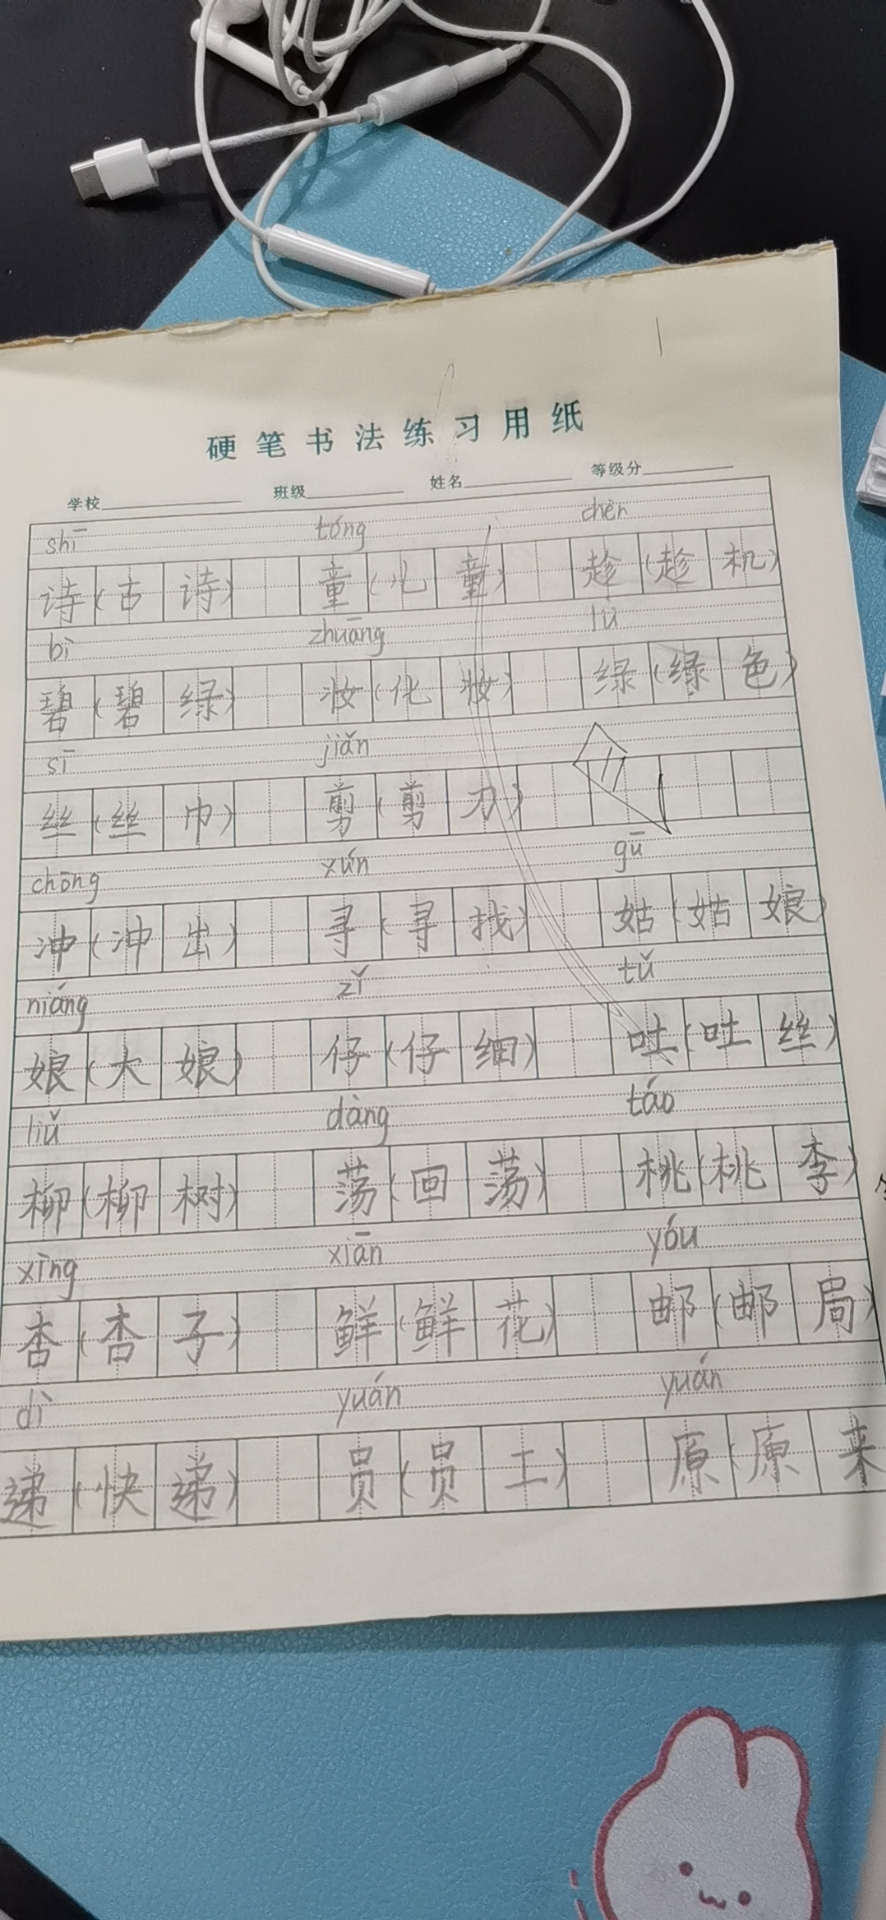 硬笔书法练习用纸
学校 班级 姓名 等级分
shī tóng chèn
诗(古诗) 童(儿童) 趁(趁机)
bì zhuāng lǜ
碧(碧绿) 妆(化妆) 绿(绿色)
sī jiǎn
丝(丝巾) 剪(剪刀)
chōng xún gū
冲(冲出) 寻(寻找) 姑(姑娘)
niáng zǐ tǔ
娘(大娘) 仔(仔细) 吐(吐丝)
liǔ dàng táo
柳(柳树) 荡(回荡) 桃(桃李)
xīng xiān yóu
杏(杏子) 鲜(鲜花) 邮(邮局)
dì yuán yuán
递(快递) 员(员工) 原(原来